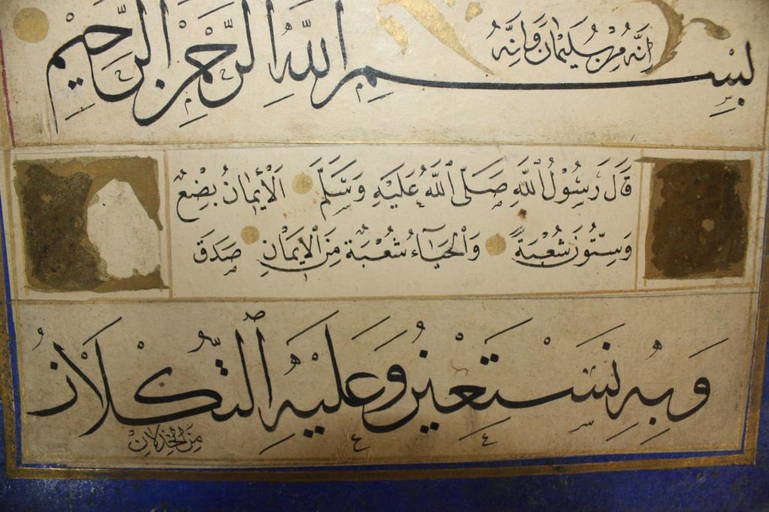 إِنَّهُ مِنْ سُلَيْمَانَ وَإِنَّهُ
بِسْمِ اللَّهِ الرَّحْمٰنِ الرَّحِيْمِ
قَالَ رَسُوْلُ اللَّهِ صَلَّى اللَّهُ عَلَيْهِ وَسَلَّمَ اَلْأِيْمَانُ بِضْعٌ
وَسِتُّونَ شُعْبَةً وَالْحَيَآءُ شُعْبَةٌ مِنَ الْإِيْمَانِ صَدَقَ
وَبِهِ نَسْتَعِيْنُ وَعَلَيْهِ التُّكْلَانُ
مِنَ الْخِذْلَانِ